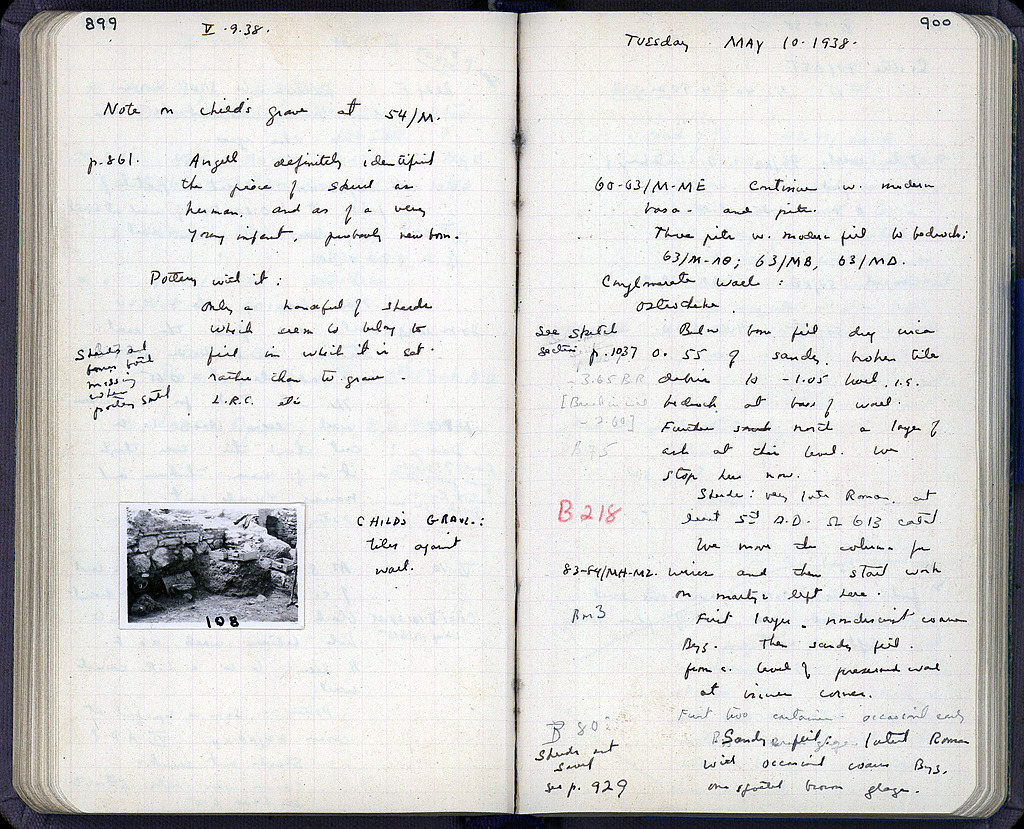 899
V.9.38.
Note on child's grave at 54/M.
p.861. Angell definitely identified
the piece of skull as
human, and as of a very
young infant, probably newborn.
Pottery with it:
Only a handful of sherds
which seem to belong to
fill in which it is set
rather than to grave.
L.R.C. etc
Sherds and
bones both
missing
when
pottery
108
CHILD'S GRAVE:
tiles against
wall.
900
TUESDAY MAY 10.1938.
60-63/M-ME Continue w. modern
and pits.
Three pits w. modern fill to bedrock;
63/M-MB; 63/MB, 63/MD.
Conglomerate Wall:
See sketch
section p.1037
Below fill dug circa
0.55 of sandy broken tile
debris to -1.05 level, i.e.
bedrock at base of wall.
-3.65 BR
-2.60]
Further north a layer of
ash at this level. We
stop here now.
B 75
Sherds: very late Roman, at
least 5th A.D. Ω 613
B 218
We move the column for
83-84/MH-MZ. and then start work
on left here.
Bm3
First layer, nondescript coarse
Byz. Then sandy fill.
from c. level of preserved wall
at corner.
First two containers occasional early
B 80:
Sandy fill: latest Roman
with occasional coarse Byz.
one spotted brown glaze.
Sherds not
saved
see p. 929